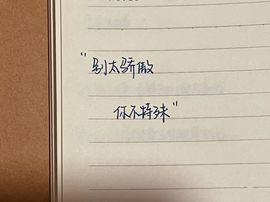 "别太骄傲
你不特殊"